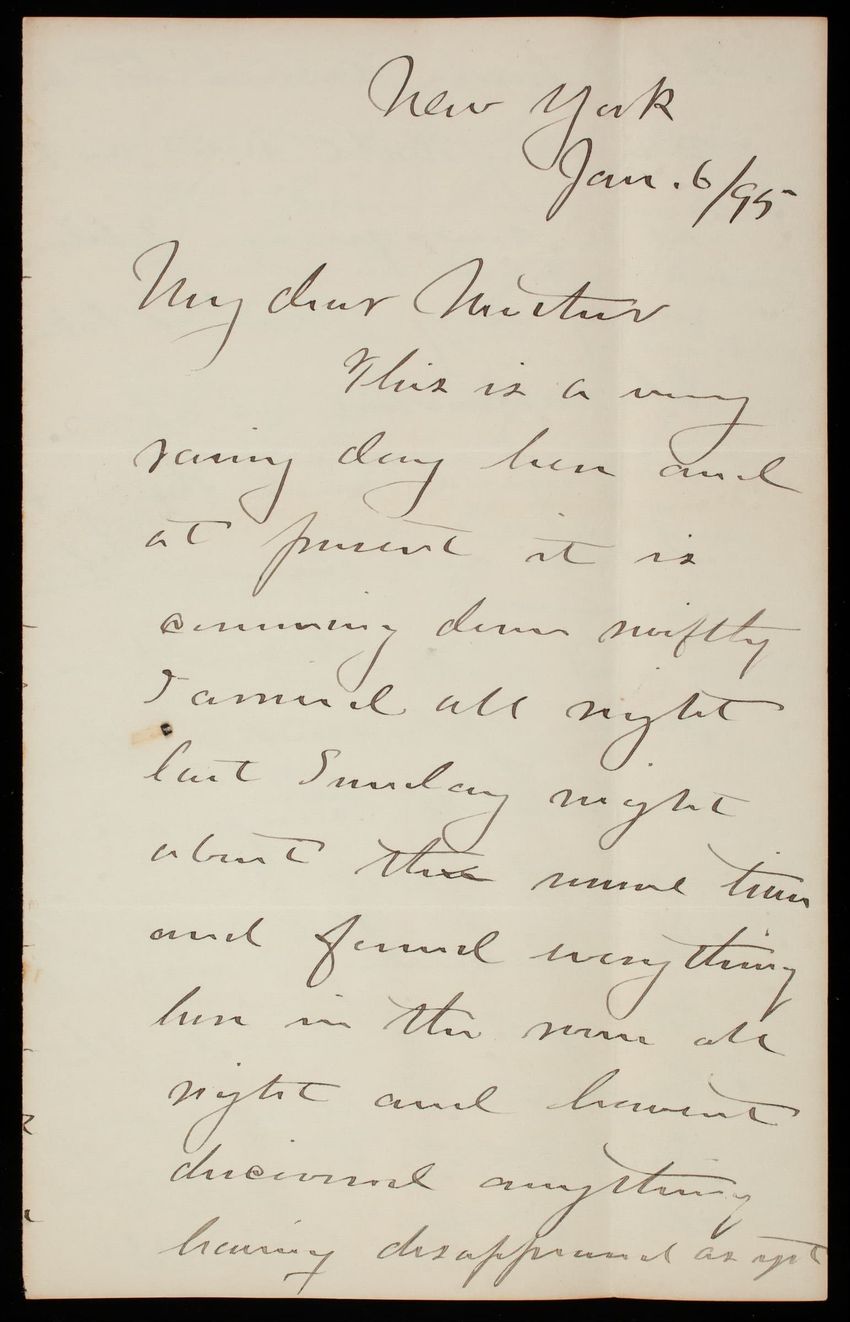 New York
Jan. 6/95
My dear Mother
This is a very
rainy day here and
at present it is
comming down swiftly
I arrived all right
last Sunday night
about the usual time
and found everything
here in the room all
right and havent
discovered anything
having disappeared as yet